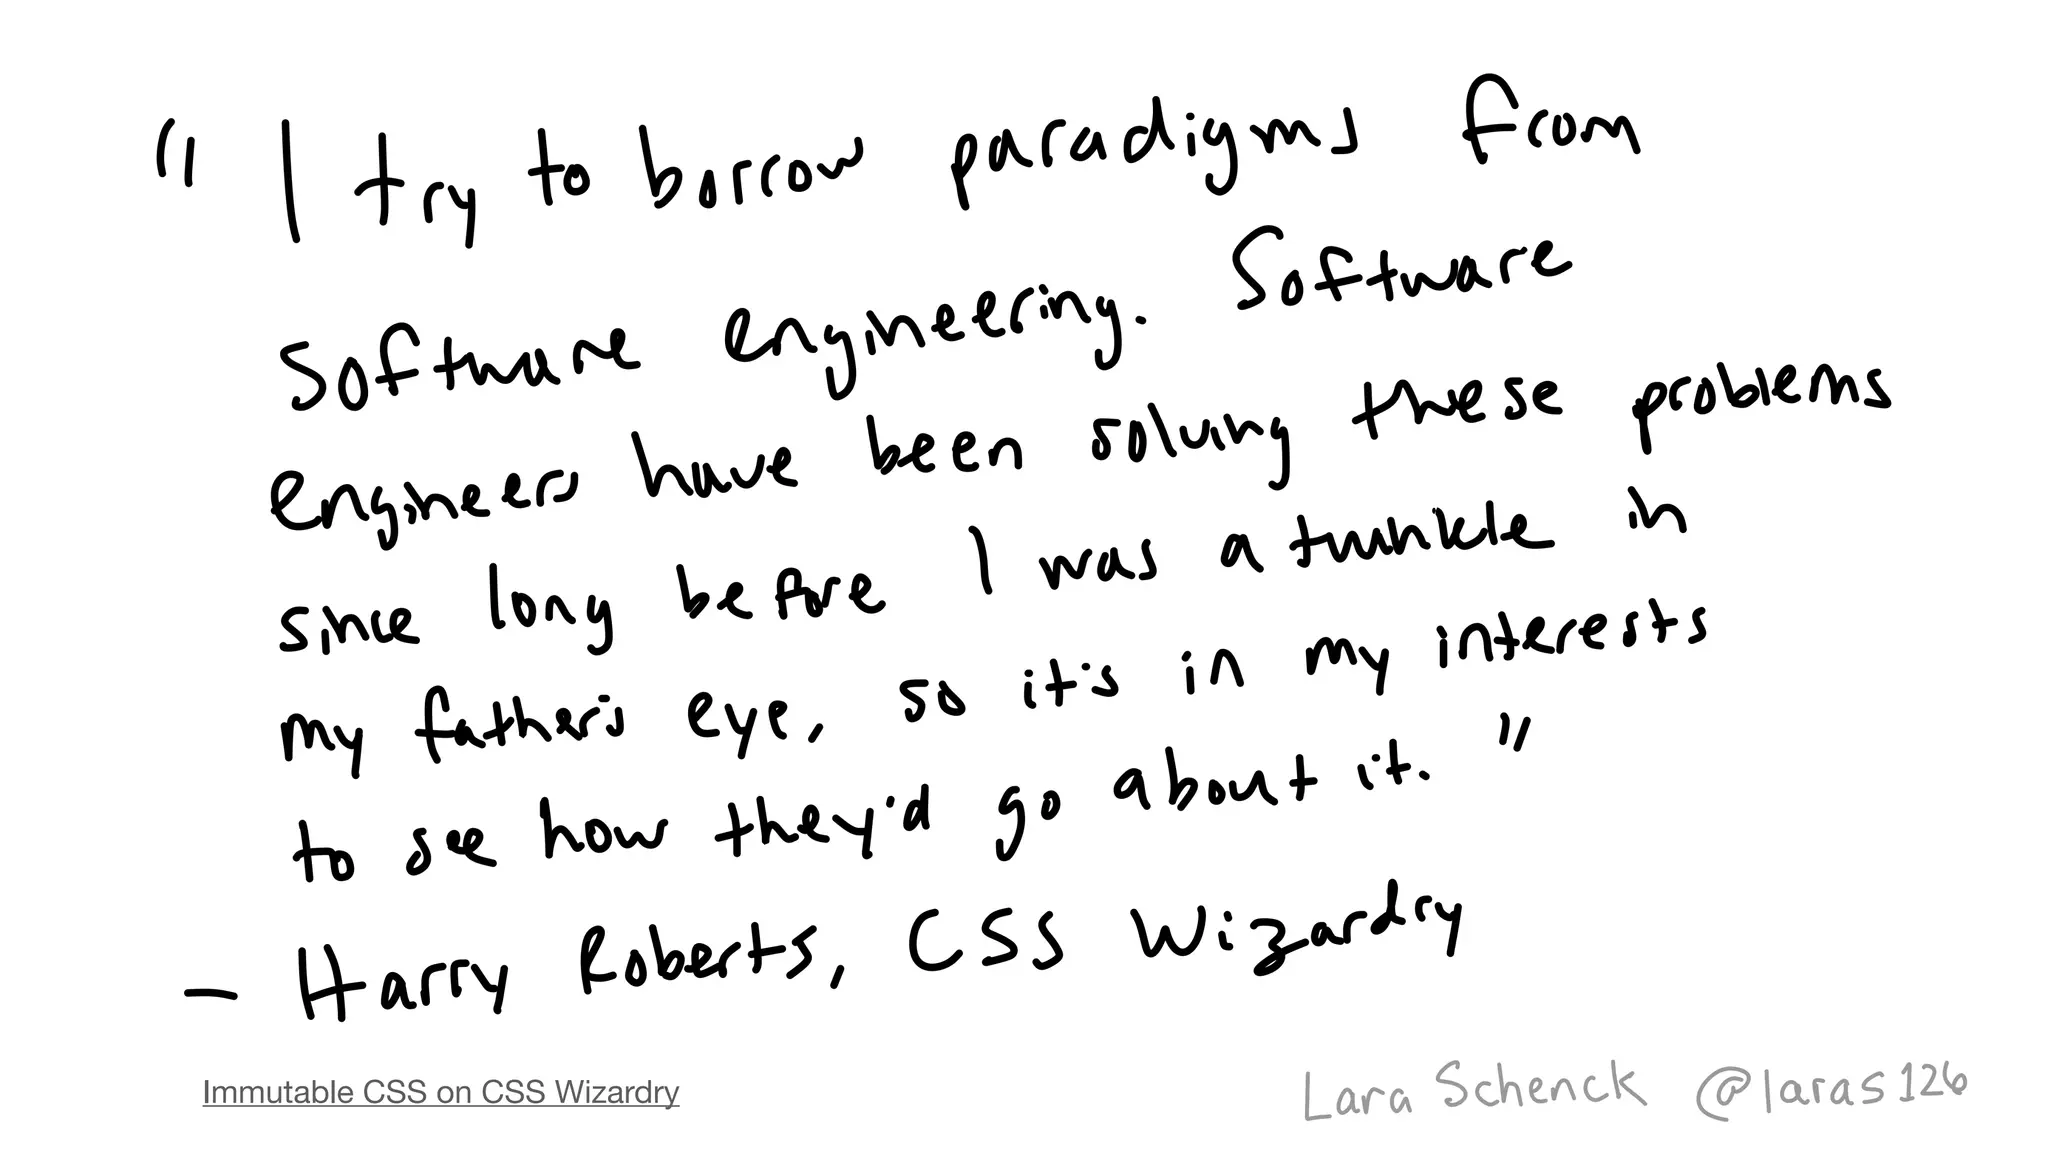 " I try to borrow paradigms from
software engineering. Software
engineers have been solving these problems
since long before I was a twinkle in
my father's eye, so it's in my interests
to see how they'd go about it. "
- Harry Roberts, CSS Wizardry
Immutable CSS on CSS Wizardry
Lara Schenck @laras126